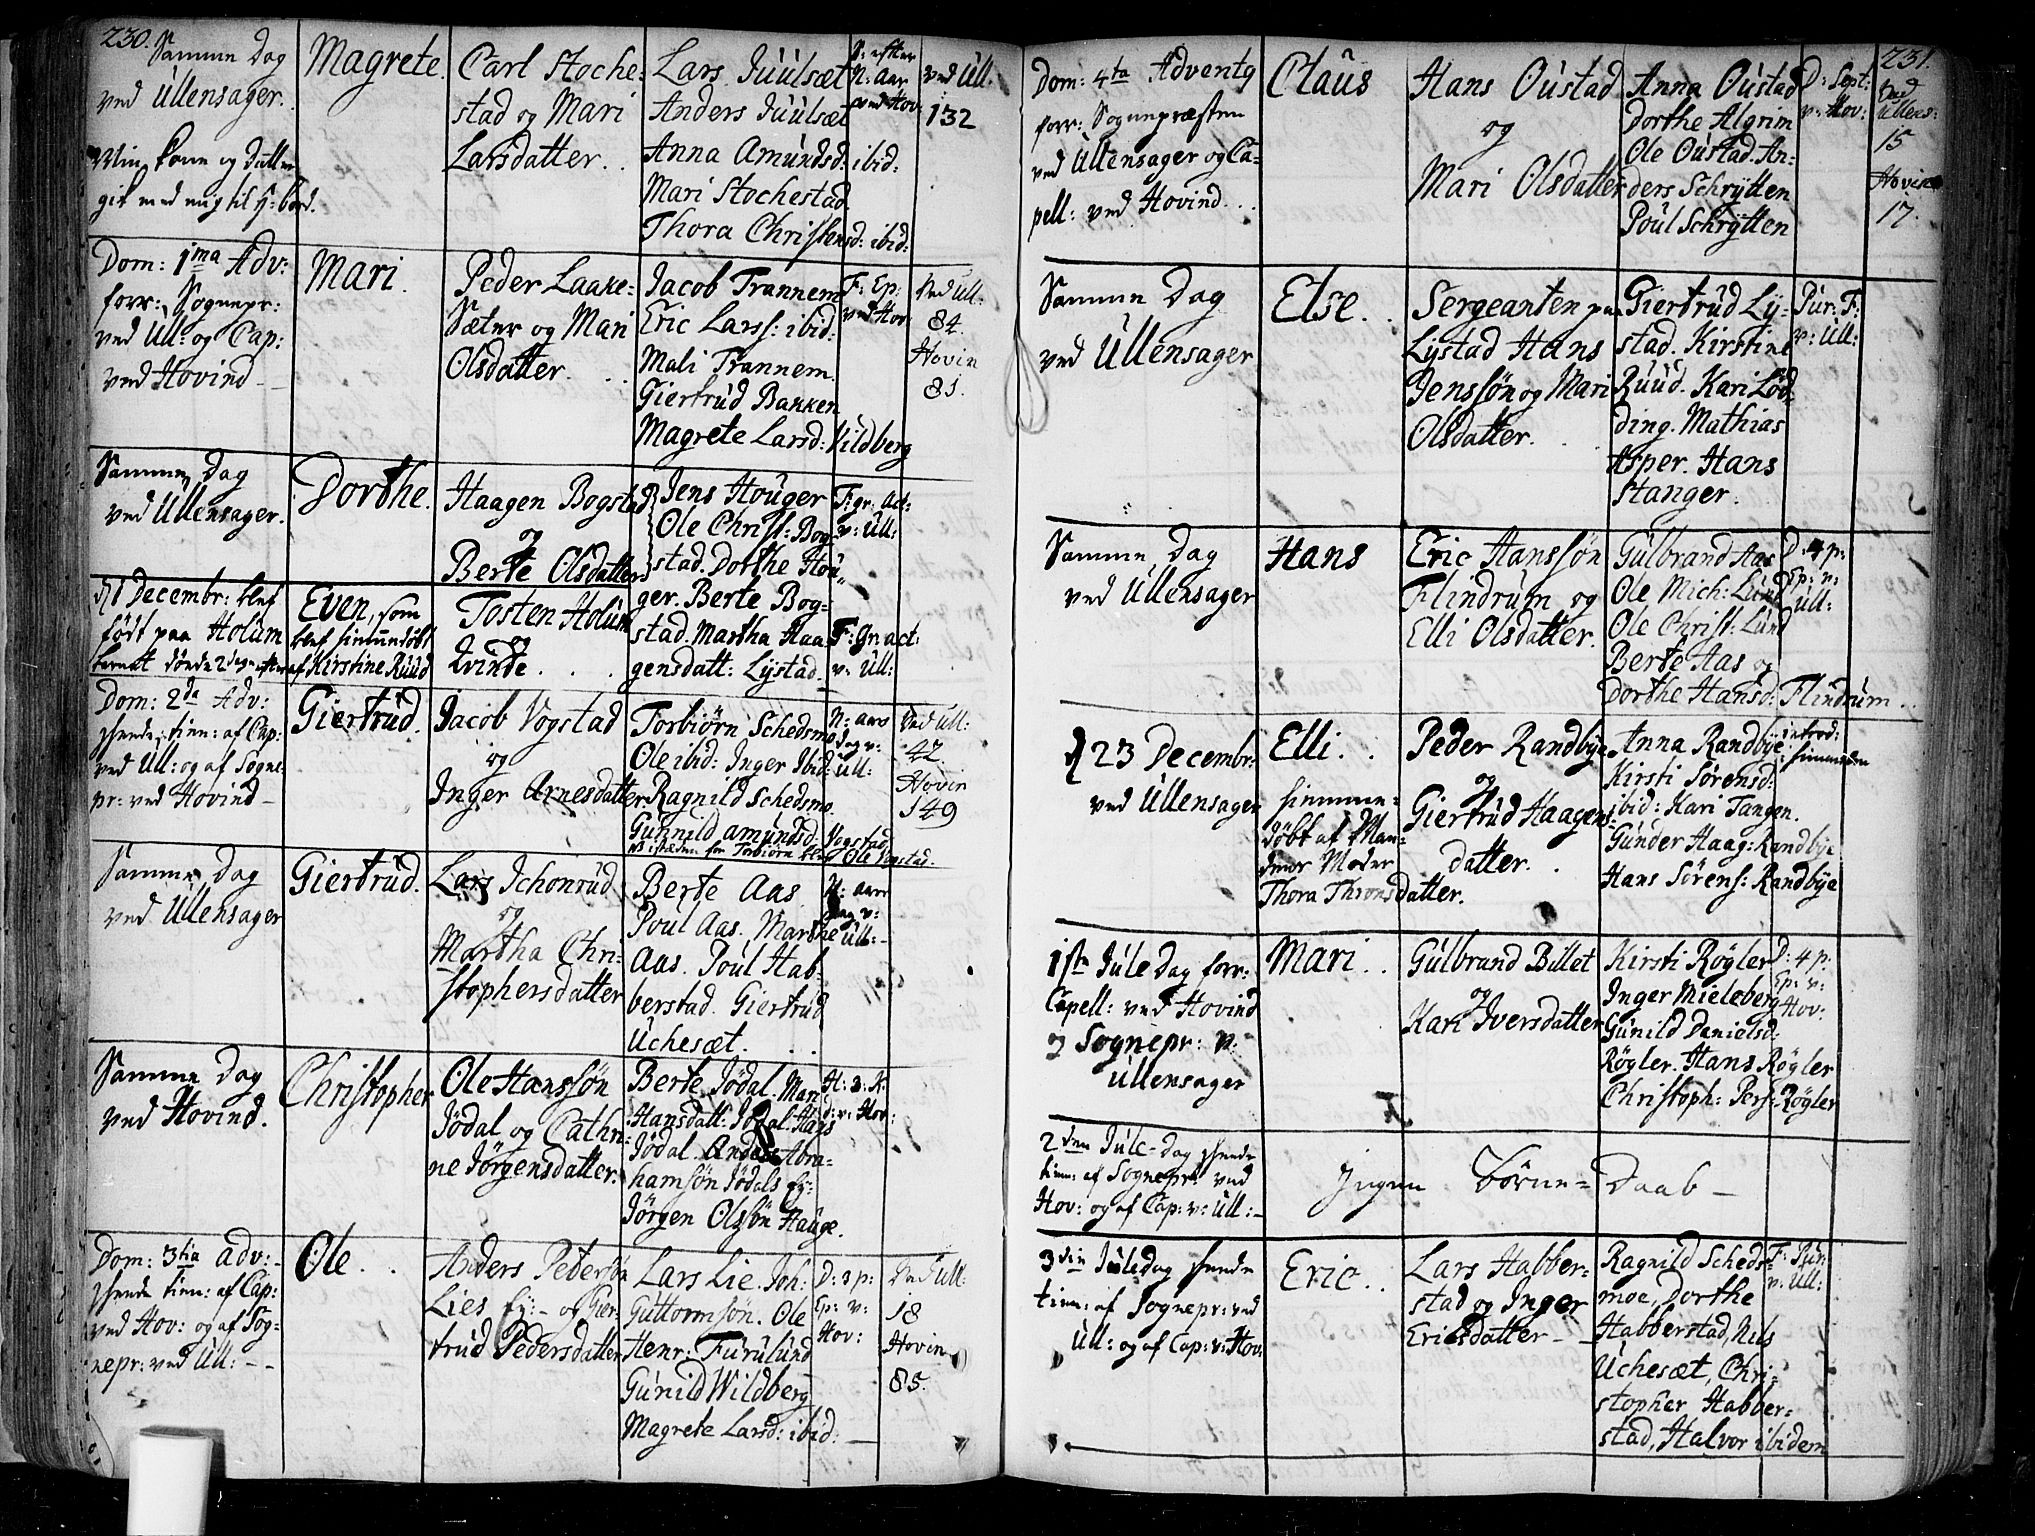 230.
Samme Dag
ved Ullensager.
Min kone og datter
gik med mig til H: bord.
Magrete.
Carl Stoche-
stad og Mari
Larsdatter.
Lars Juulsæt
Anders Juulsæt
Anna Amundsd: ibid:
Mari Stochestad
Thora Christensd: ibid:
D: efter
N: aar
ved Hov.
ved Ull:
132
Dom: 1ma Adv:
forr: Sognepr:
ved Ull: og Cap:
ved Hovind -
Mari.
Peder Laake-
Sæter og Mari
Olsdatter. . .
Jacob Trannem
Eric Larss: ibid:
Mali Trannem.
Giertrud Bakken
Magrete Larsd: Vildberg
F: Ep:
ved Hov
Ved Ull:
84.
Hovin
81.
Samme Dag
ved Ullensager.
Dorthe.
Haagen Bogstad
og
Berte Olsdatter
Jens Houger
Ole Christ: Bog-
stad. Dorthe Hou-
ger. Berte Bog-
stad. Martha Haa-
gensdatt: Lystad.
F: gr: act:
v: Ull:
d 1 Decembr: blef
født paa Holum
barnet døde 2 dage efter
Even, som
blef hiemmedøbt
af Kirstine Ruud
Tosten Holum
og
Qvinde . . .
F: gr: act:
v: Ull:
Dom: 2da Adv:
thiene, tien: af Cap:
ved Ull: og af Sogne-
pr: ved Hovind -
Giertrud.
Jacob Vogstad
og
Inger Arnesdatter
Torbiørn Schedsmo
Ole ibid: Inger Ibid:
Ragnild Schedsmo
Gunnild Amundsd: Vogstad
NB isteden for Torbiørn blev Ole Vogstad.
N: aars
dag v:
Ull:
Ved Ull:
42.
Hovin
149
Samme Dag
ved Ullensager
Giertrud.
Lars Schonrud
og
Martha Chri-
stophersdatter
Berte Aas
Poul Aas. Marthe
Aas. Poul Hab-
berstad. Giertrud
Uchesæt. . .
N: aars
dag v:
Ull: -
Samme Dag
ved Hovind.
Christopher
Ole Hanssøn
Jødal og Cathri-
ne Jørgensdatter.
Berte Jødal. Mari
Hansdatt: Jødal. Hans
Jødal. Anders Abra-
hamsøn Jødals Ej:
Jørgen Olssøn Hauge.
H: 3: K:
d: v: Hov:
Dom: 3tia Adv: -
thiene tien: af Cap:
ved Hov: og af Sog-
nepr: ved Ull: - -
Ole . .
Anders Pedersøn
Lies Ej: - og Gier-
trud Pedersdatter
Lars Lie. Joh:
Guttormsøn. Ole
Henr: Furulund
Gunild Wildberg
Magrete Larsd: ibid: -
D: 3 p:
Ep: v:
Hov:
Ved Ull:
18
Hovin
85.
231.
Dom: 4ta Adventq
forr: Sognepræsten
ved Ullensager og Ca-
pell: ved Hovind . .
Claus
Hans Oustad
og
Mari Olsdatter
Anna Oustad
Dorthe Algrim
Ole Oustad. An-
ders Schrytten
Poul Schrytten
D: Sept:
v: Hov:
Ved
Ullens:
15
Hovin
17.
Samme Dag
ved Ullensager
Else .
Sergeanten paa
Lystad Hans
Jenssøn og Mari
Olsdatter. .
Giertrud Ly-
stad. Kirstine
Ruud. Kari Lød-
ding. Mathias
Asper. Hans
Stanger.
Pur: F:
v: Ull:
Samme Dag
ved Ullensager
Hans
Eric Hanssøn
Flindrum og
Elli Olsdatter.
Gulbrand Aas
Ole Mich: Lund
Ole Christ: Lund
Berte Aas og
Dorthe Hansd: Flindrum . .
D: 4 p:
Ep: v:
Ull:
d 23 Decembr:
ved Ullensager
Elli . .
hiemme-
døbt af Man-
dens Moder
Thora Thronsdatter.
Peder Randbye
og
Giertrud Haagens-
datter. .
Anna Randbye
Kirsti Sørensd:
ibid: Kari Tangen.
Gunder Haag: Randbye
Hans Sørens: Randbye
introd:
hiemme
1ste Jule Dag forr:
Capell: ved Hovind
og Sognepr: v:
Ullensager
Mari . .
Gulbrand Billet
og
Kari Iversdatter
Kirsti Røgler
Inger Mieleberg
Gunild Danielsd:
Røgler. Hans Røgler
Christoph: Pers: Røgler
D: 4 p:
Ep: v:
Hov:
2den Jule-Dag thiene
tien: af Sognepr: ved
Hov: og af Cap: v: Ull: -
Ingen Børne-Daab -
3die Juledag thiene
tien: af Sognepr: ved
Ull: og af Cap: v: Hov:
Eric . .
Lars Habber-
stad og Inger
Ericsdatter - -
Ragnild Scheds-
moe, Dorthe
Habberstad, Nils
Uchesæt, Chri-
stopher Habber-
stad, Halvor ibidem
F: Pur:
v: Ull: